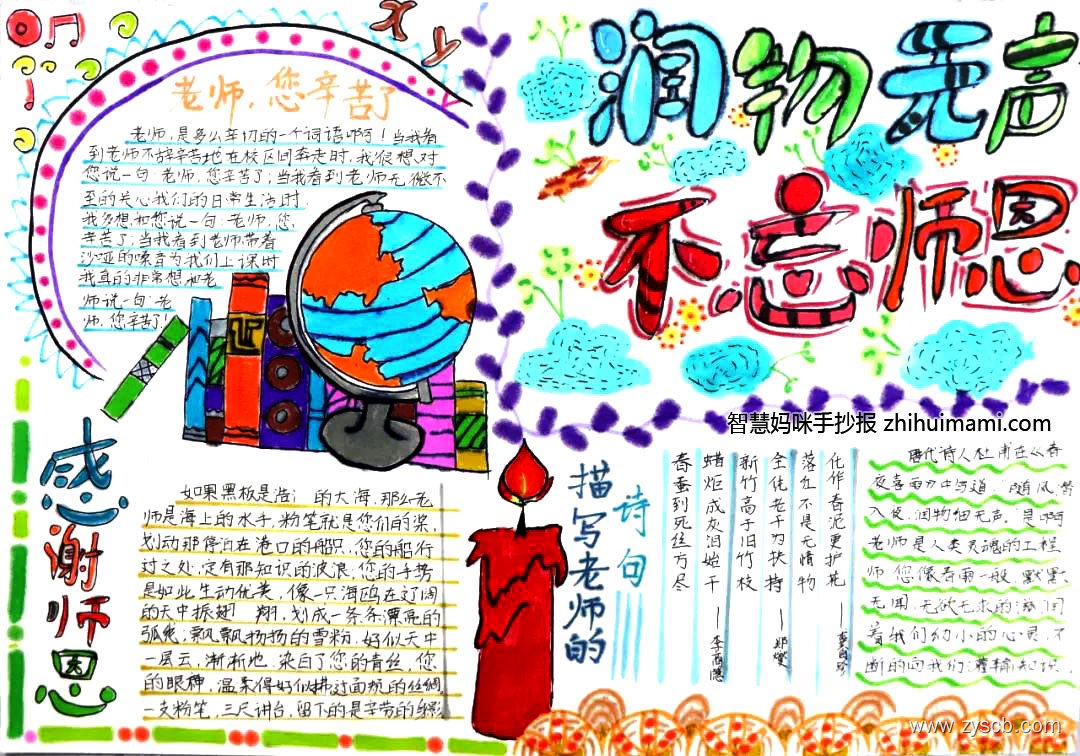 润物无声
不忘师恩
老师,您辛苦了
老师,是多么辛切的一个词语啊!当我看
到老师不辞辛苦地在校区间奔走时,我很想对
您说一句 老师,您辛苦了;当我看到老师无微不
至的关心我们的日常生活时,
我多想和您说一句 老师,您
辛苦了;当我看到老师带着
沙哑的嗓音为我们上课时
我真的非常想和老
师说一句 老
师,您辛苦了!
智慧妈咪手抄报 zhihuimami.com
感谢师恩
如果黑板是浩 的大海,那么老
师是海上的水手,粉笔就是您们的桨,
划动那停泊在港口的船只,您的船行
过之处,定有那知识的波浪,您的手势
是如此生动优美,像一只海鸥在辽阔
的天中振翅 翔,划成一条条漂亮的
弧线;飘飘扬扬的雪粉,好似天中
一层云,渐渐地,染白了您的青丝,您
的眼神,温柔得好似拂过面颊的丝绸
一支粉笔,三尺讲台,留下的是辛劳的身影
描写老师的
诗句
春蚕到死丝方尽
蜡炬成灰泪始干
——李商隐
新竹高于旧竹枝
全凭老干为扶持
——郑燮
落红不是无情物
化作春泥更护花
——龚自珍
唐代诗人杜甫在从春
夜喜雨中写道,随风潜
入夜,润物细无声。是啊
老师是人类灵魂的工程
师,您像春雨一般,默默
无闻,无欲无求的滋润
着我们幼小的心灵,不
断的向我们灌输知识.
www.zyscb.com